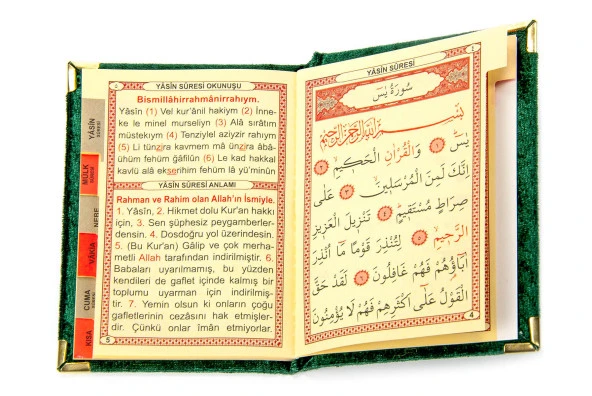 YÂSÎN SÛRESİ
KISA
CUMA
SÛRESİ
VÂKIA
NEBE
MÜLK
SÛRESİ
YÂSÎN
SÛRESİ
5
YÂSÎN SÛRESİ OKUNUŞU
Bismillâhirrahmânirrahıym.
Yâsîn (1) Vel kur'ânil hakiym (2) İnne-
ke le minel murseliyn (3) Alâ sırâtim
müstekıym (4) Tenziylel aziyzir rahıym
(5) Li tünzira kavmem mâ ünzira âbâ-
ühüm fehüm ğâfilûn (6) Le kad hakkal
kavlü alâ ekserihim fehüm lâ yü'minûn
YÂSÎN SÛRESİ ANLAMI
Rahman ve Rahim olan Allah'ın İsmiyle.
1. Yâsîn, 2. Hikmet dolu Kur'an hakkı
için, 3. Sen şüphesiz peygamberler-
densin. 4. Dosdoğru yol üzerindesin.
5. (Bu Kur'an) Gâlip ve çok merha-
metli Allah tarafından indirilmiştir. 6.
Babaları uyarılmamış, bu yüzden
kendileri de gaflet içinde kalmış bir
toplumu uyarman için indirilmiş-
tir. 7. Yemin olsun ki onların çoğu
gafletlerinin cezasını hak etmişler-
dir. Çünkü onlar îmân etmiyorlar.
5
سُورَةُ يٰسٓ
بِسْمِ اللّٰهِ الرَّحْمٰنِ الرَّحِيمِ
يٰسٓ ١ وَالْقُرْاٰنِ الْحَكِيمِ ٢
اِنَّكَ لَمِنَ الْمُرْسَلِينَ ٣ عَلٰى
صِرَاطٍ مُسْتَقِيمٍ ٤ تَنْزِيلَ الْعَزِيزِ
الرَّحِيمِ ٥ لِتُنْذِرَ قَوْمًا مَٓا اُنْذِرَ
اٰبَٓاؤُهُمْ فَهُمْ غَافِلُونَ ٦ لَقَدْ حَقَّ
الْقَوْلُ عَلٰٓى اَكْثَرِهِمْ فَهُمْ لَا يُؤْمِنُونَ
4